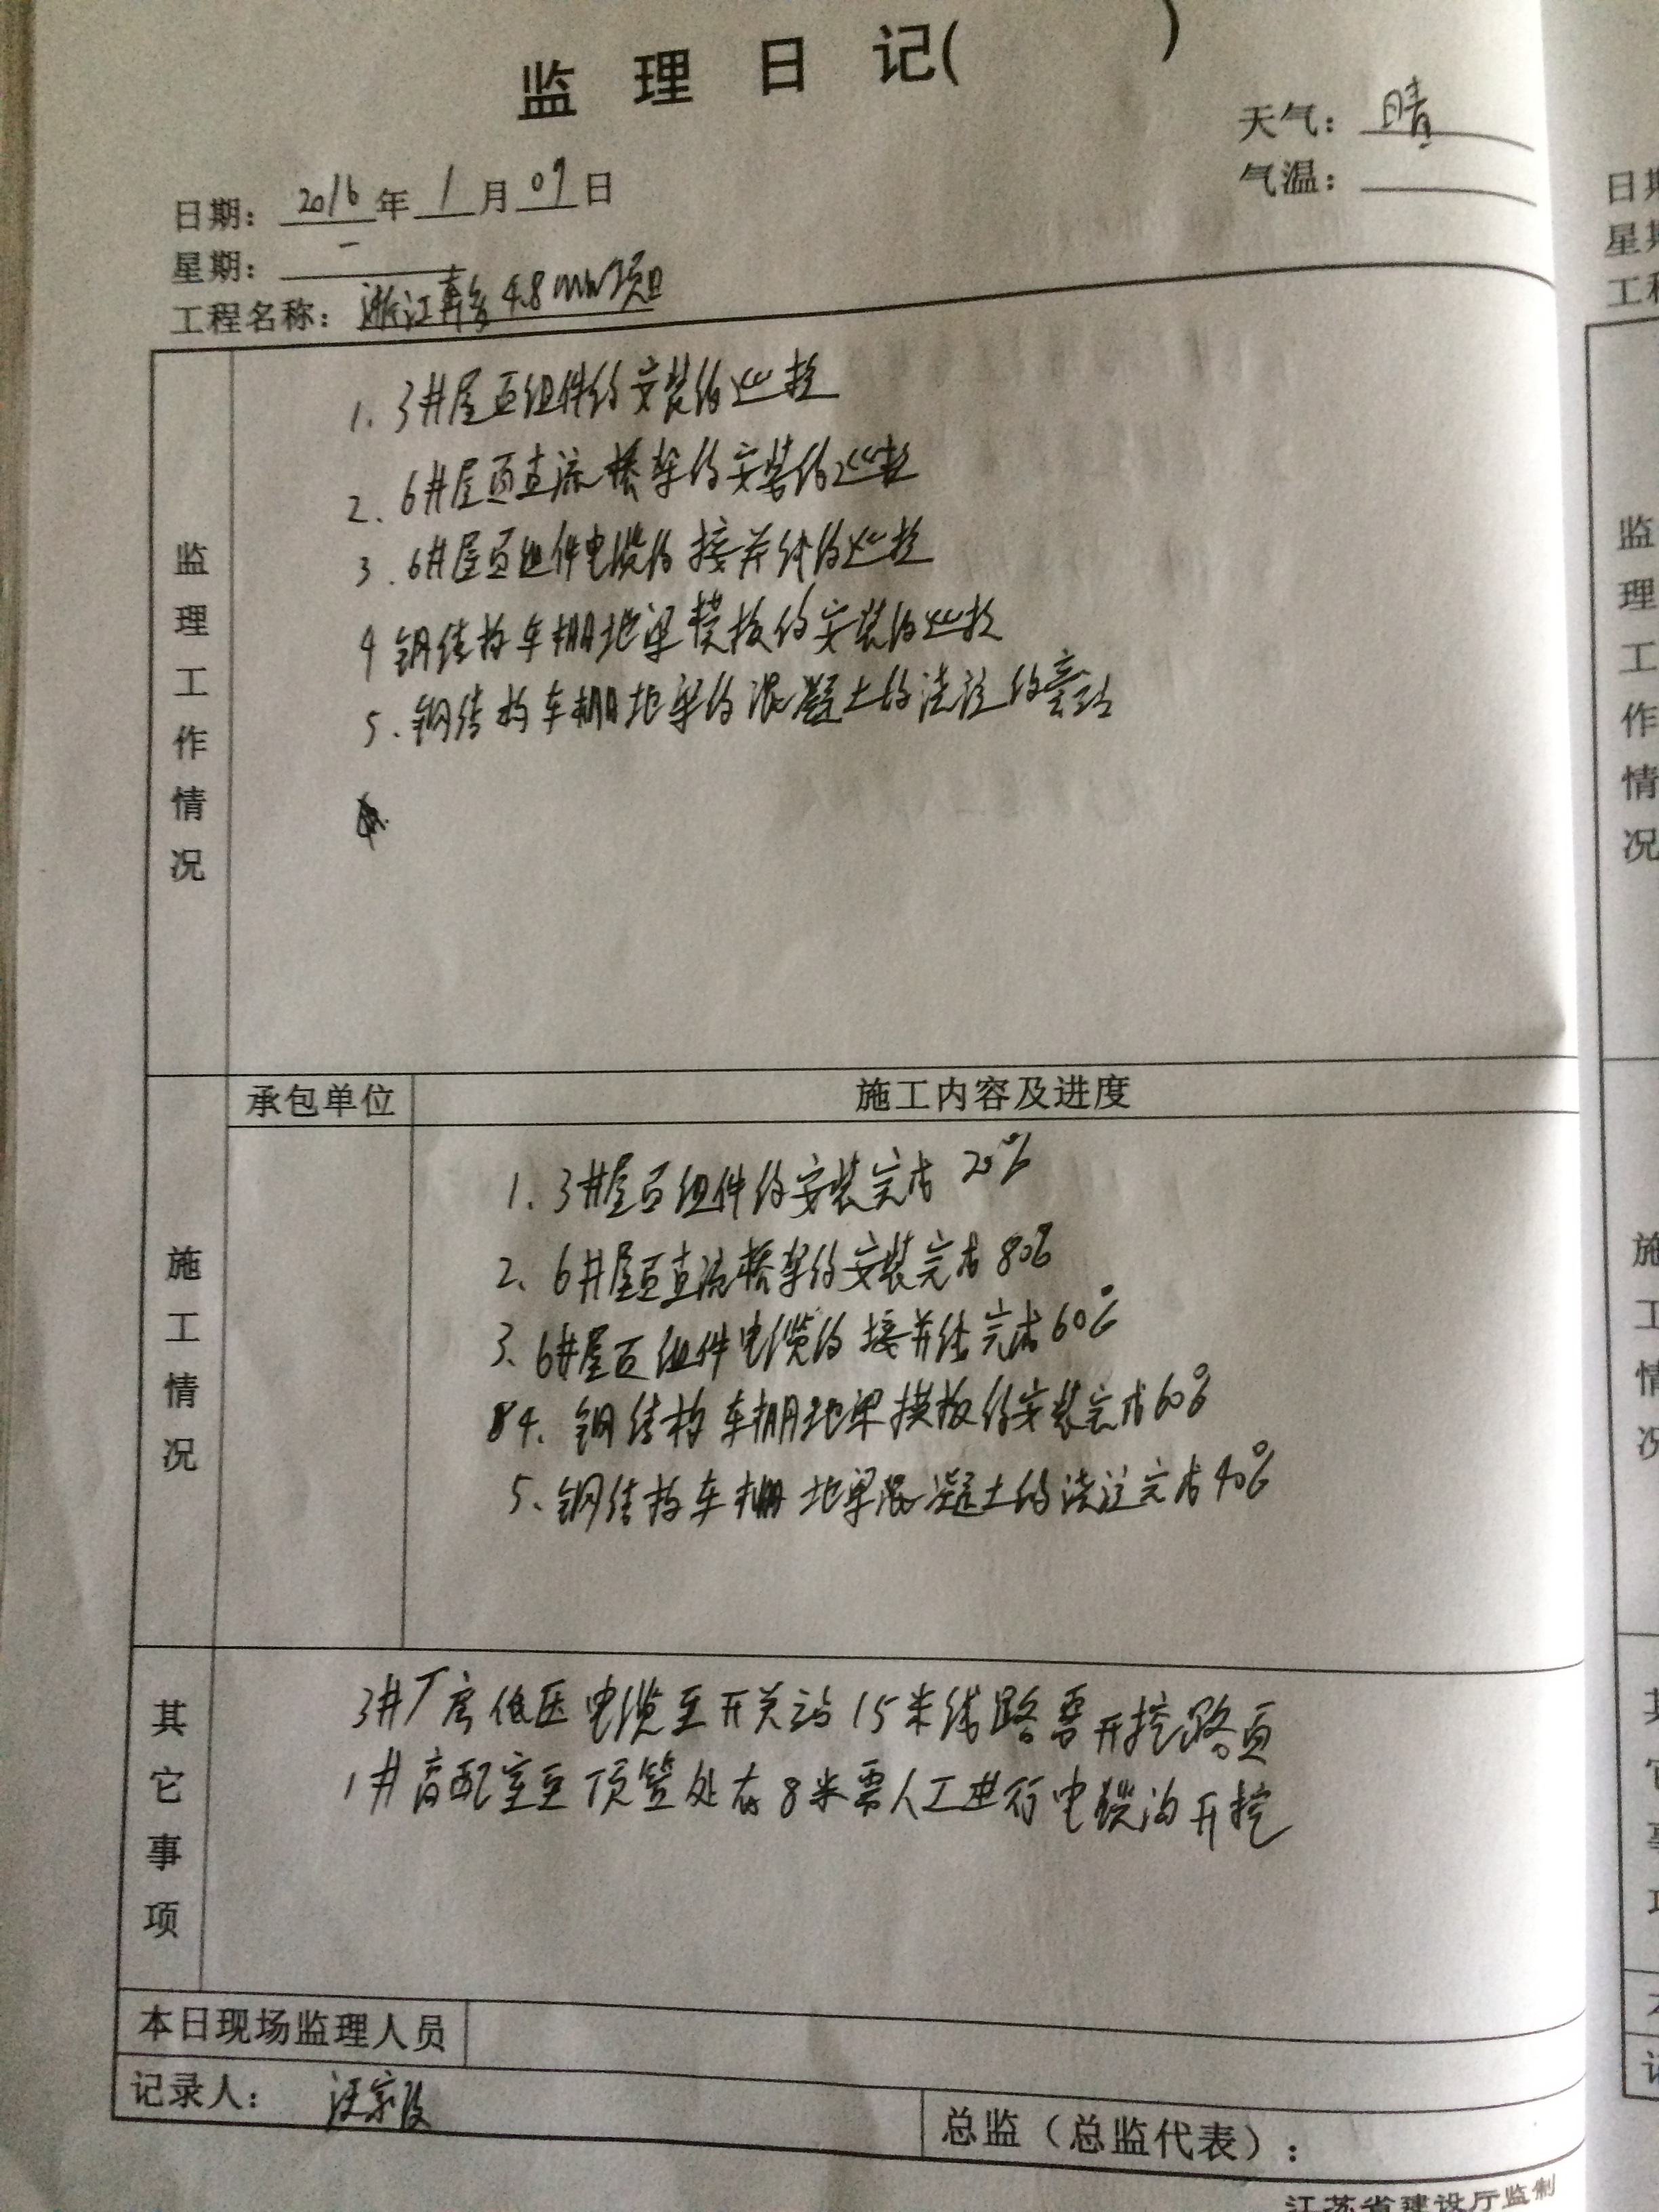 监 理 日 记( )
天气: 晴
气温:
日期: 2016 年 1 月 07 日
星期: 一
工程名称: 浙江 4.8mw项目
监理工作情况
1. 3#屋面组件的安装的巡检
2. 6#屋面直流桥架的安装的巡检
3. 6#屋面组件电缆的接并线的巡检
4 钢结构车棚地梁模板的安装的巡检
5. 钢结构车棚地梁的混凝土的浇注的旁站
承包单位 施工内容及进度
施工情况
1. 3#屋面组件的安装完成 20%
2. 6#屋面直流桥架的安装完成 80%
3. 6#屋面组件电缆的接并线完成 60%
4. 钢结构车棚地梁模板的安装完成60%
5. 钢结构车棚地梁混凝土的浇注完成 40%
其它事项
3#厂房低压电缆至开关站 15米线路需开挖路面
1#高配室至顶管处有8米需人工进行电缆沟开挖
本日现场监理人员
记录人: 汪
总监(总监代表):
江苏省建设厅监制